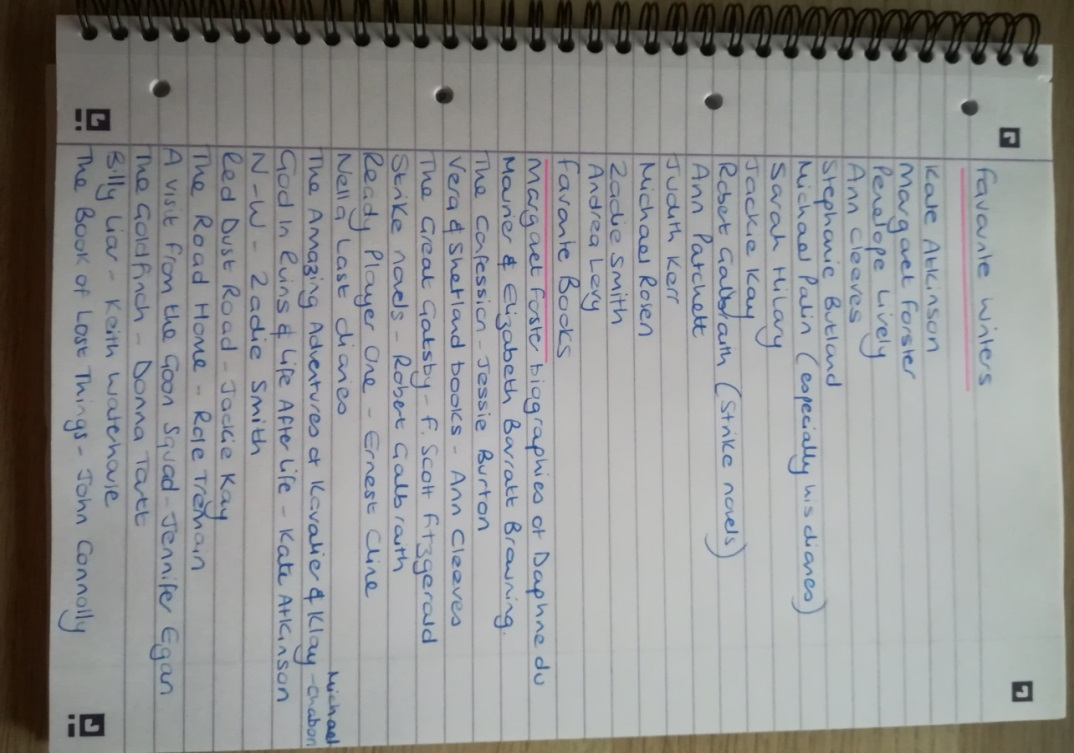 Favourite Writers
Kate Atkinson
Margaret Forster
Penelope Lively
Ann Cleeves
Stephanie Butland
Michael Palin (especially his diaries)
Sarah Hilary
Jackie Kay
Robert Galbraith (Strike novels)
Ann Patchett
Judith Kerr
Michael Rosen
Zadie Smith
Andrea Levy
Favourite Books
Margaret Forster biographies of Daphne du
Maurier & Elizabeth Barratt Browning.
The Confession - Jessie Burton
Vera & Shetland books - Ann Cleeves
The Great Gatsby - F. Scott Fitzgerald
Strike novels - Robert Galbraith
Ready Player One - Ernest Cline
Nella Last diaries
The Amazing Adventures of Kavalier & Klay - Michael Chabon
God In Ruins & Life After Life - Kate Atkinson
N-W - Zadie Smith
Red Dust Road - Jackie Kay
The Road Home - Rose Tremain
A visit from the Goon Squad - Jennifer Egan
The Goldfinch - Donna Tartt
Billy Liar - Keith Waterhouse
The Book of Lost Things - John Connolly